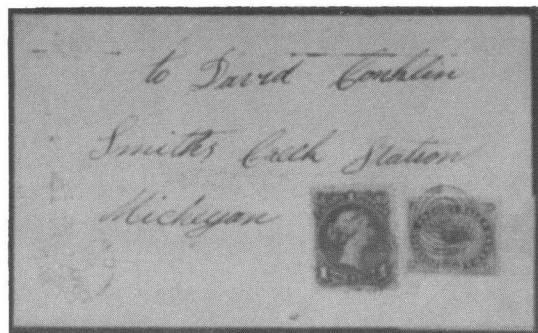 to David Conklin
Smiths Creek Station
Michigan
1 1